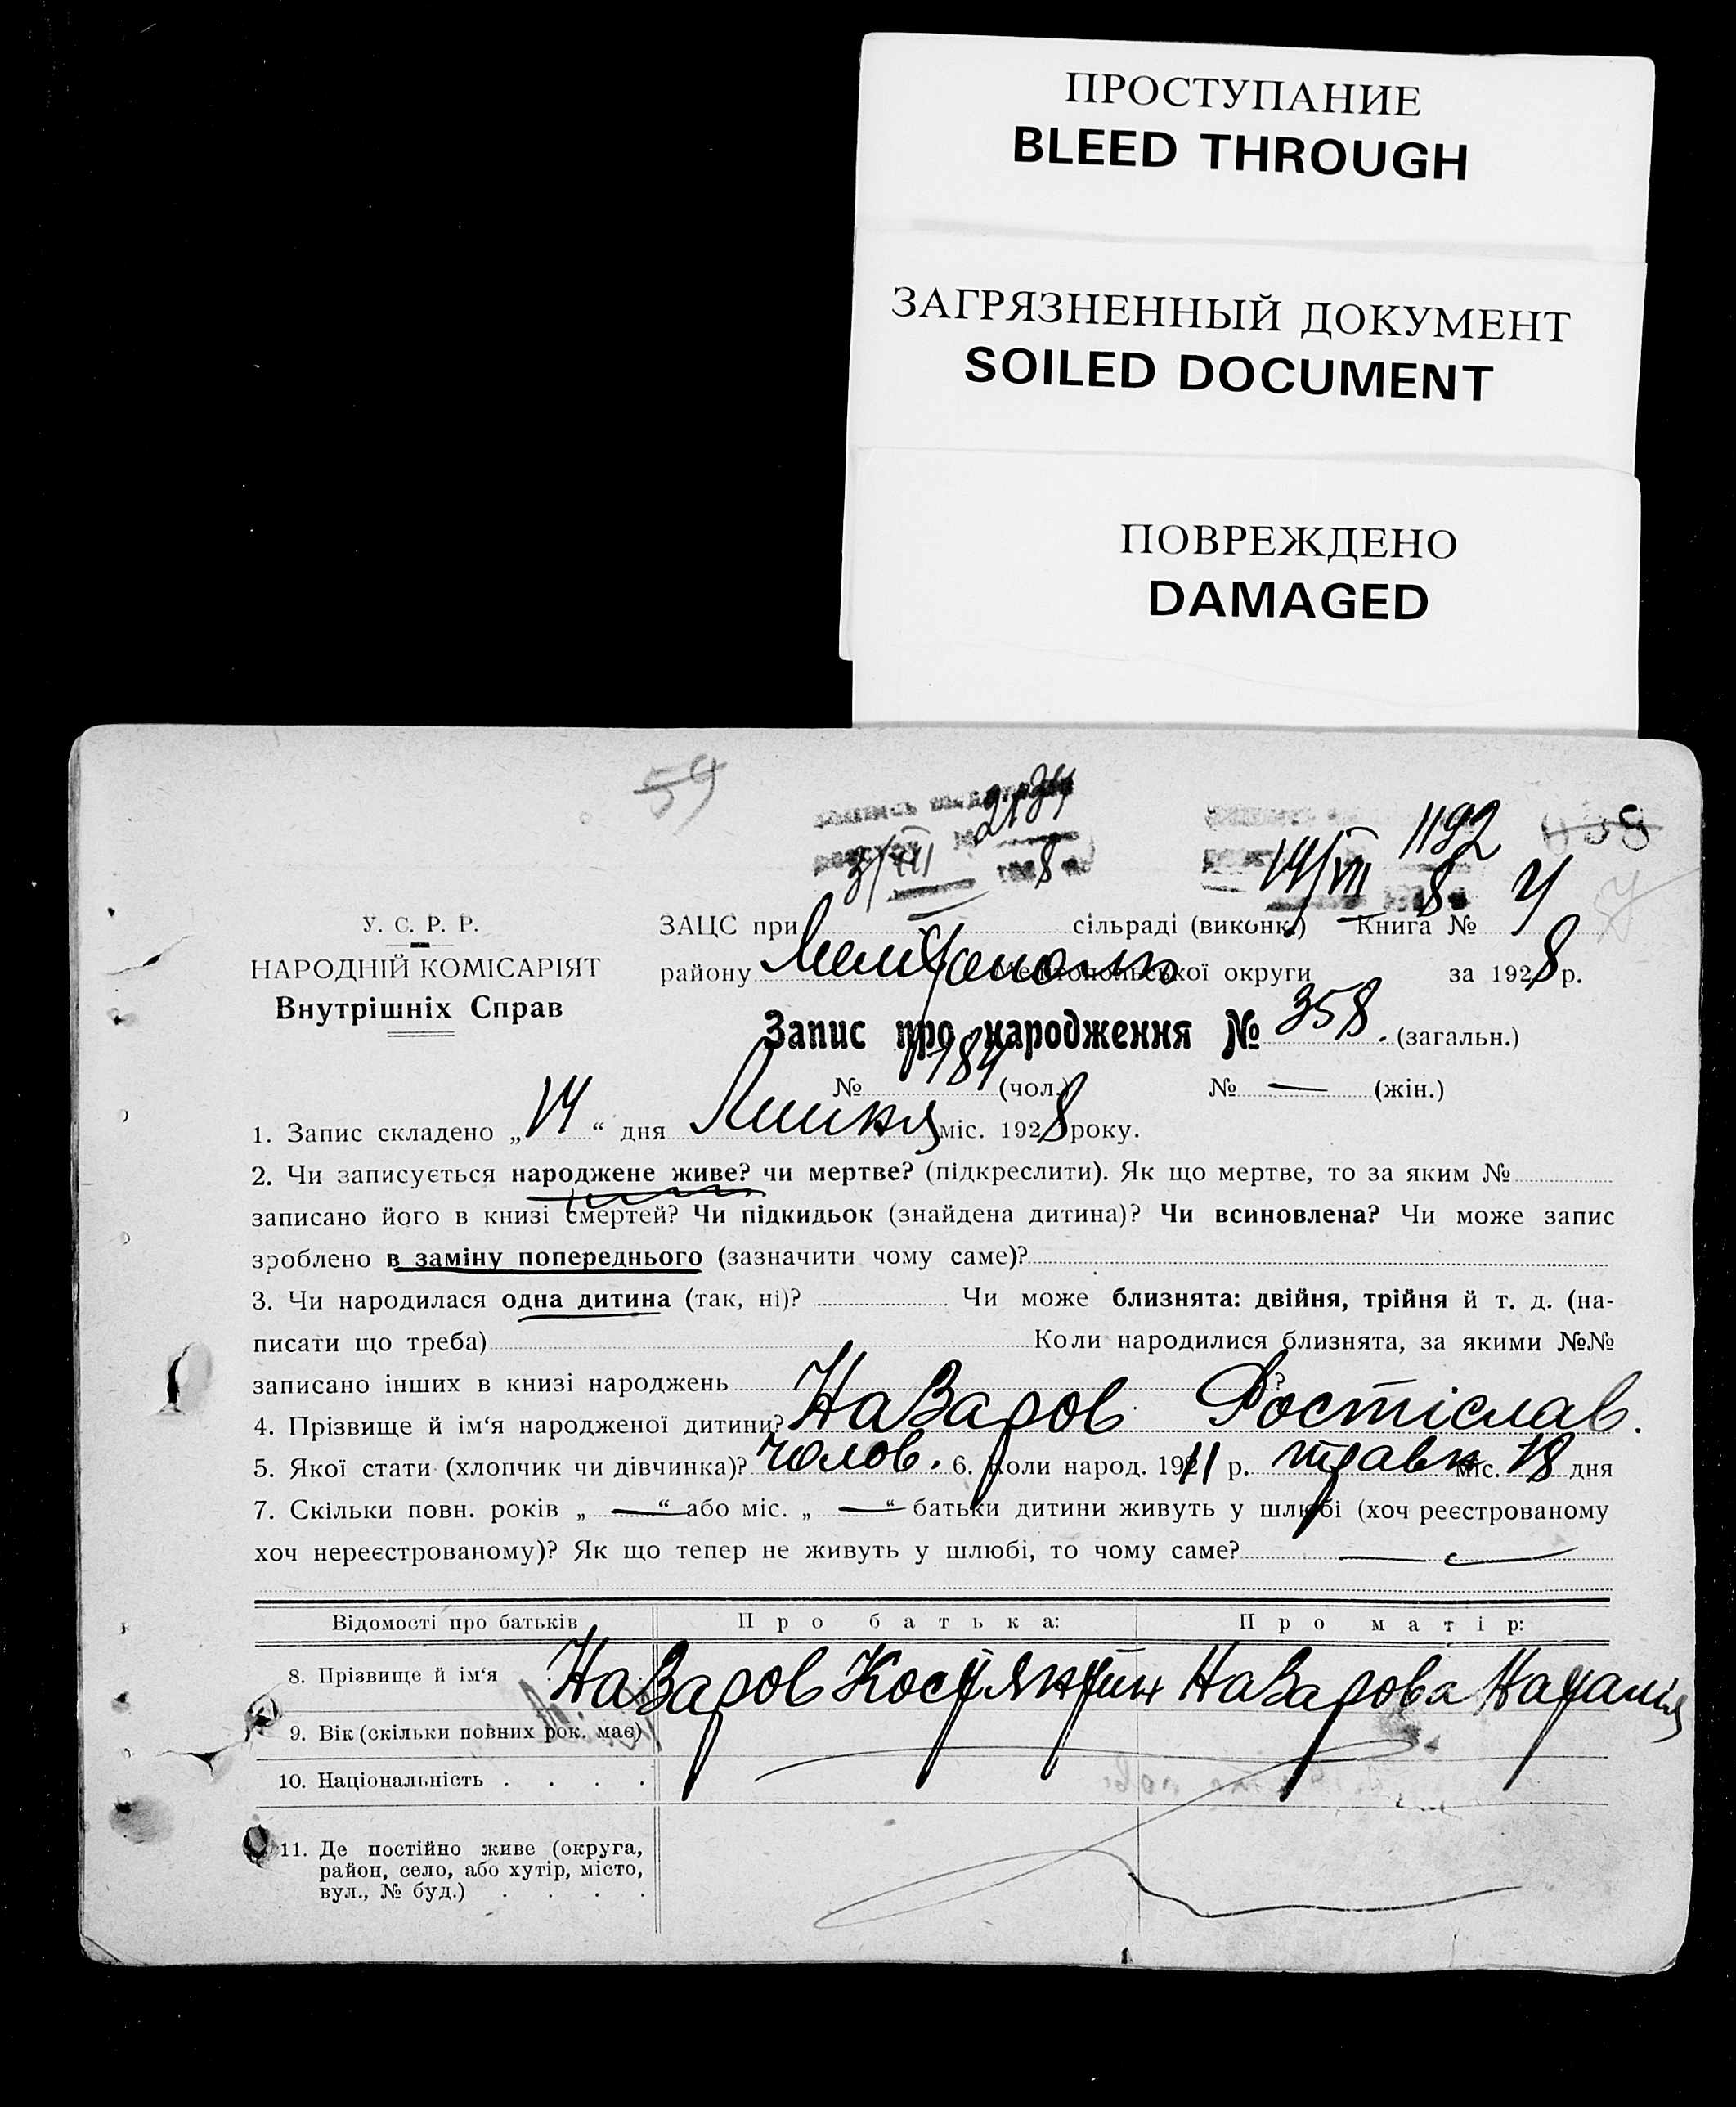 ПРОСТУПАНИЕ
BLEED THROUGH
ЗАГРЯЗНЕННЫЙ ДОКУМЕНТ
SOILED DOCUMENT
ПОВРЕЖДЕНО
DAMAGED
59
2134
3/VII 8
1192
14/VII 8
У. С. Р. Р.
НАРОДНІЙ КОМІСАРІЯТ
Внутрішніх Справ
ЗАЦС при сільраді (виконк.) Книга № 4
району Мелітополь Мелітопольської округи за 1928 р.
Запис про народження № 358. (загальн.)
№ 184 (чол.) № — (жін.)
1. Запис складено „14“ дня Липня міс. 1928 року.
2. Чи записується народжене живе? чи мертве? (підкреслити). Як що мертве, то за яким №
записано його в книзі смертей? Чи підкидьок (знайдена дитина)? Чи всиновлена? Чи може запис
зроблено в заміну попереднього (зазначити чому саме)?
3. Чи народилася одна дитина (так, ні)? Чи може близнята: двійня, трійня й т. д. (на-
писати що треба) Коли народилися близнята, за якими №№
записано інших в книзі народжень ?
4. Прізвище й ім‘я народженої дитини? Назаров Ростіслав.
5. Якої стати (хлопчик чи дівчинка)? чолов. 6. Коли народ. 1911 р. травн міс. 18 дня
7. Скільки повн. років „ — “ або міс. „ — “ батьки дитини живуть у шлюбі (хоч реєстрованому
хоч нереєстрованому)? Як що тепер не живуть у шлюбі, то чому саме? —
Відомості про батьків Про батька: Про матір:
8. Прізвище й ім‘я Назаров Костянтин Назарова Наталія
9. Вік (скільки повних рок. має)
10. Національність . . . .
11. Де постійно живе (округа,
район, село, або хутір, місто,
вул., № буд.) . . . .